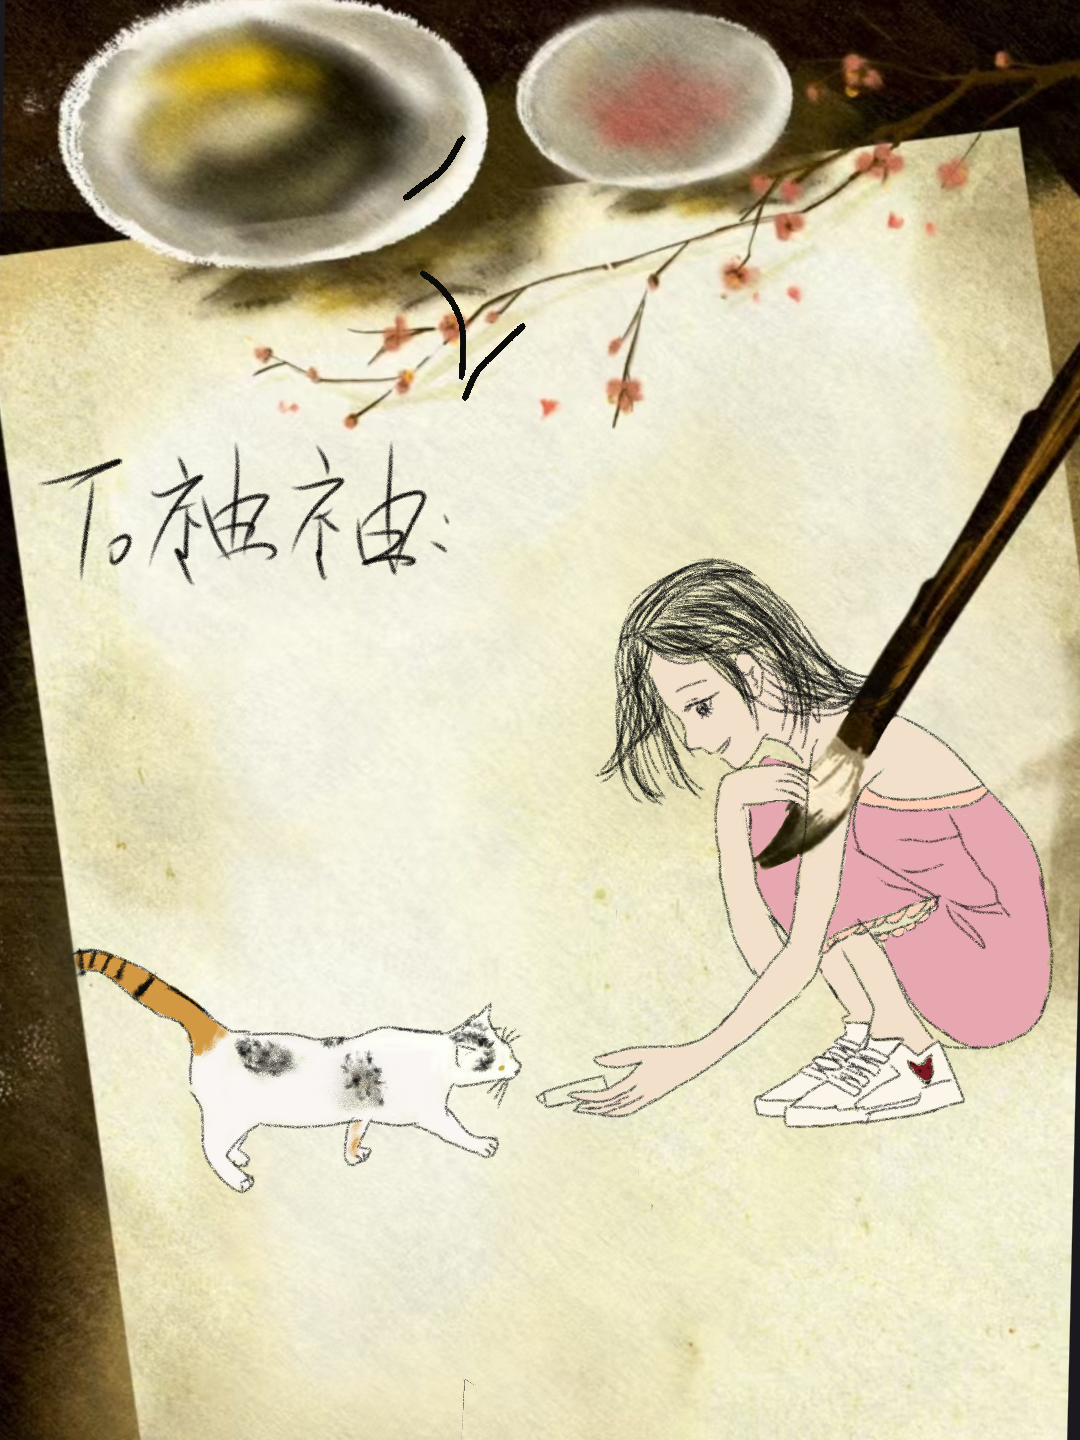 To袖袖: